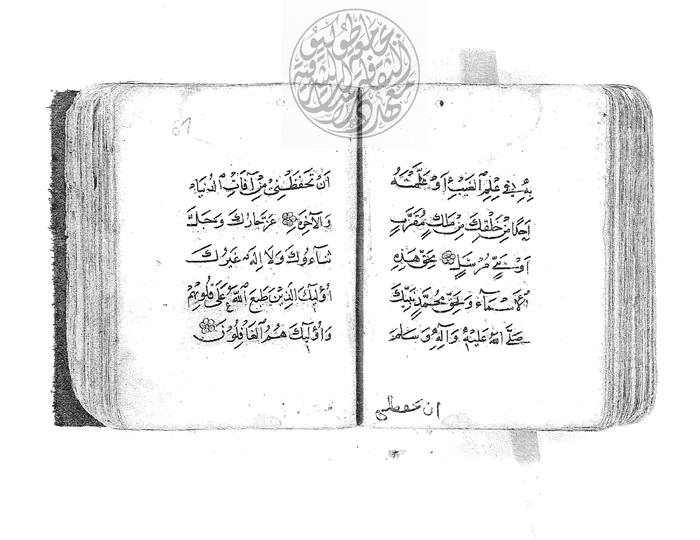 بِهِ فِي عِلْمِ الْغَيْبِ أَوْ عَلَّمْتَهُ
أَحَدًا مِنْ خَلْقِكَ مِنْ مَلَكٍ مُقَرَّبٍ
أَوْ نَبِيٍّ مُرْسَلٍ بِحَقِّ هَذِهِ
الْأَسْمَاءِ وَبِحَقِّ مُحَمَّدٍ نَبِيِّكَ
صَلَّى اللَّهُ عَلَيْهِ وَآلِهِ وَسَلَّمَ
ان تحفظني
61
أَنْ تَحْفَظَنِي مِنْ آفَاتِ الدُّنْيَا
وَالْآخِرَةِ عَزَّ جَارُكَ وَجَلَّ
ثَنَاءُوكَ وَلَا إِلَهَ غَيْرُكَ
أُولَئِكَ الَّذِينَ طَبَعَ اللَّهُ عَلَى قُلُوبِهِمْ
وَأُولَئِكَ هُمُ الْغَافِلُونَ